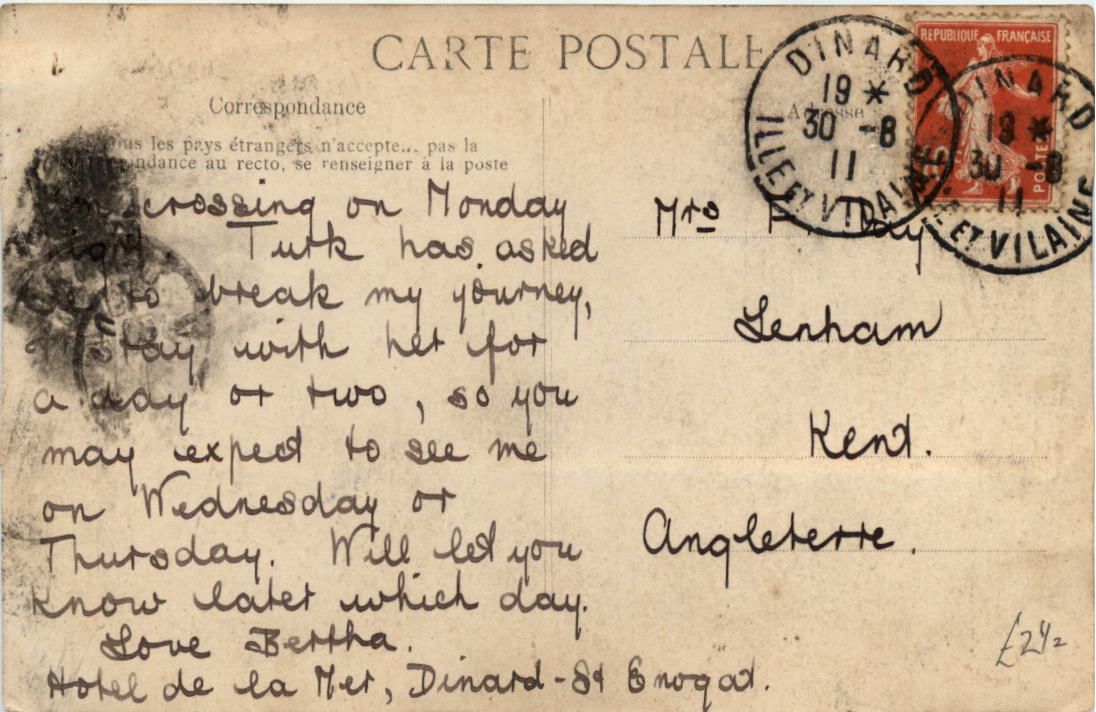 CARTE POSTALE
Correspondance
Adresse
les pays étrangers n'accepte... pas la
au recto, se renseigner à la poste
crossing on Monday
Turk has asked
to break my journey,
stay with her for
a day or two, so you
may expect to see me
on Wednesday or
Thursday. Will let you
know later which day.
Love Bertha.
Hotel de la Mer, Dinard-St Enogat.
Mrs Day
Lenham
Kent.
Angleterre.
REPUBLIQUE FRANÇAISE
POSTES
DINARD
19 *
30 -8
11
ILLE ET VILAINE
DINARD
19 *
30 -8
11
ET VILAINE